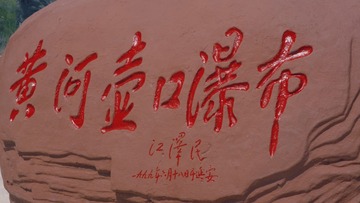 黄河壶口瀑布
江泽民
一九九九年六月十八日于延安